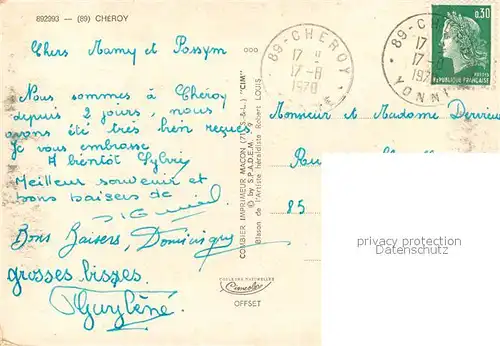 892993 — (89) CHEROY
Chers Mamy et Passym
Nous sommes à Chéroy
depuis 2 jours, nous
avons été très bien reçues
Je vous embrasse
A bientôt Sylvie
Meilleur souvenir et
bons baisers de
Bons Baisers, Dominique
grosses bisses.
Guylène
COMBIER IMPRIMEUR MACON (71, S.-&-L.) "CIM"
© by S.P.A.D.E.M.
Blason de l'Artiste héraldiste Robert LOUIS
COULEURS NATURELLES
OFFSET
89-CHEROY
17 H
17-8
1970
YONNE
89-CH
17
17-8
197
YONN
0,30
POSTES
REPUBLIQUE FRANÇAISE
Monsieur et Madame
Ru
85
privacy protection
Datenschutz